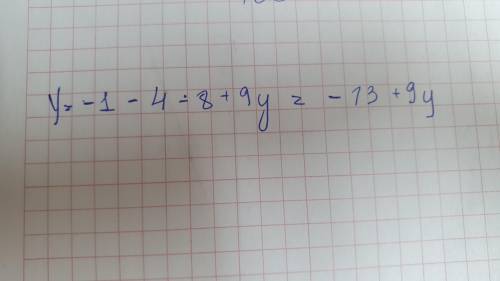 y = -1 - 4 - 8 + 9y = -13 + 9y